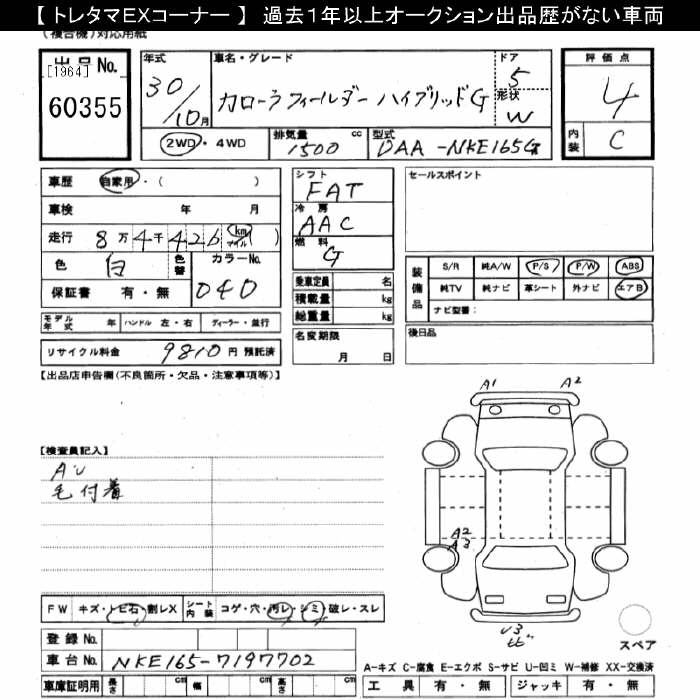 【 トレタマEXコーナー 】 過去1年以上オークション出品歴がない車両
(複合機)対応用紙
出品No.
[1964]
60355
年式
30/10月
車名・グレード
カローラフィールダー ハイブリッドG
ドア
5
形状
W
2WD・4WD
排気量
1500 cc
型式
DAA-NKE165G
評価点
4
内装
C
車歴 自家用・( )
車検 年 月
走行 8万4千426 km マイル ( )
色 白 色替
カラーNo.
040
保証書 有・無
モデル年式 年 ハンドル 左・右 ディーラー・並行
リサイクル料金 9810 円 預託済
シフト
FAT
冷房
AAC
燃料
G
乗車定員 名
積載量 kg
総重量 kg
名変期限
月 日
セールスポイント
装備品
S/R 純A/W P/S P/W ABS
純TV 純ナビ 革シート 外ナビ エアB
ナビ型番:
後日品
【出品店申告欄(不良箇所・欠品・注意事項等)】
【検査員記入】
AU
毛付着
A1
A2
A2
A3
U3
FW キズ・トビ石・割レX
シート内装 コゲ・穴・汚レ・シミ・破レ・スレ
登録No.
車台No. NKE165-7197702
車庫証明用 長さ cm 幅 cm 高さ cm
スペア
A-キズ C-腐食 E-エクボ S-サビ U-凹ミ W-補修 XX-交換済
工具 有・無 ジャッキ 有・無